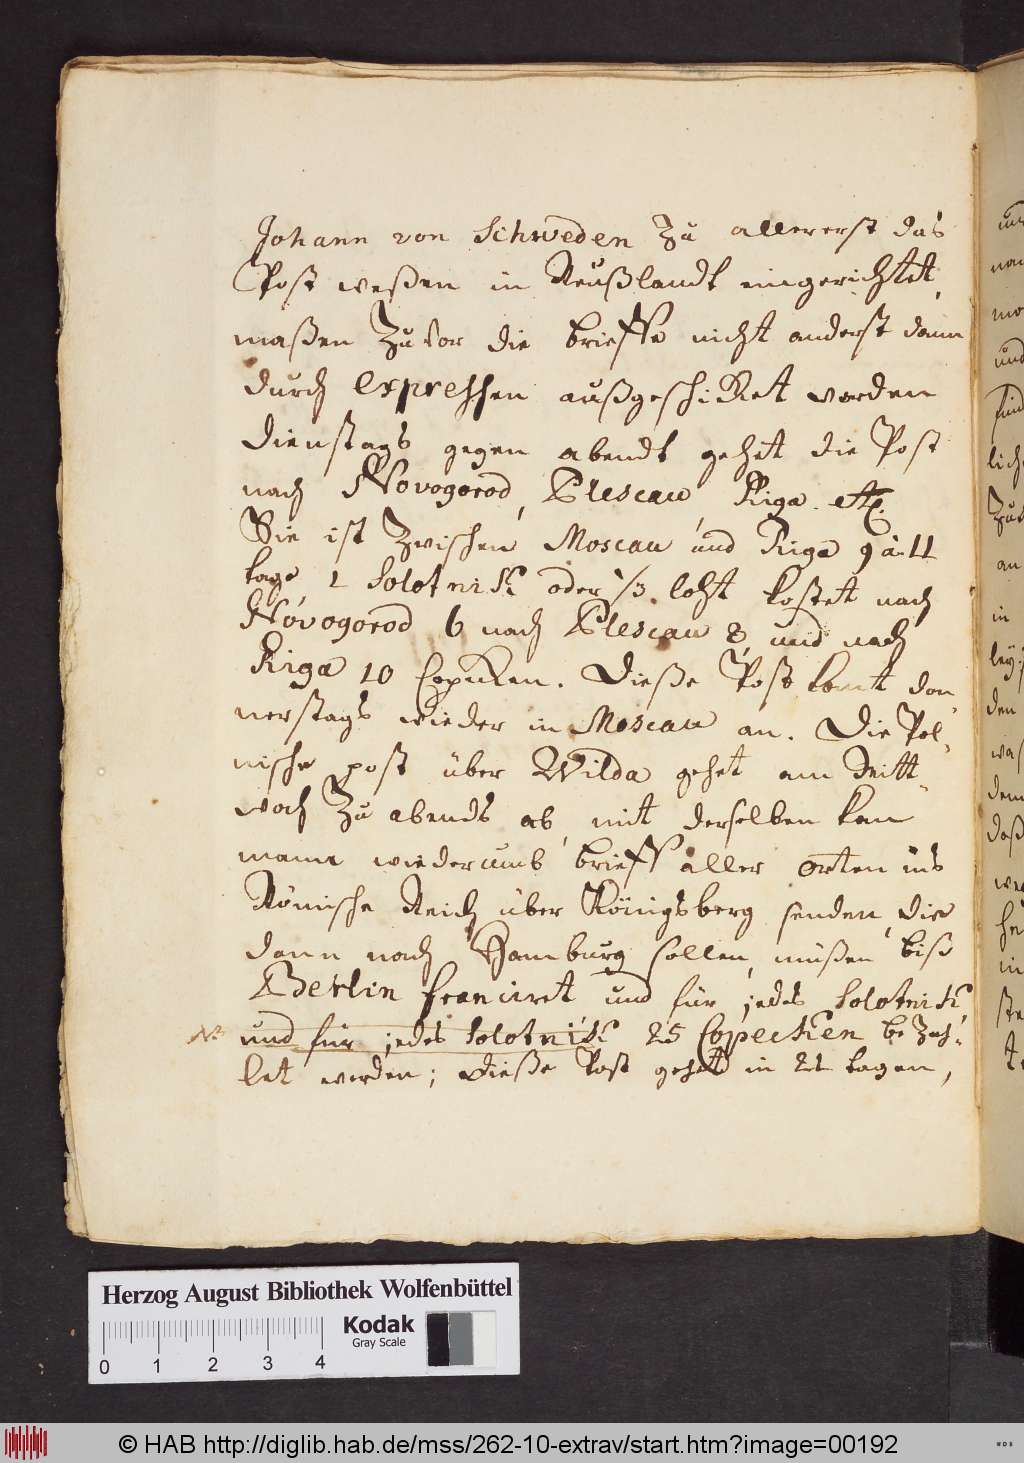 Johann von Schweden zu allererst das
Post weßen in Reußlandt eingerichtet,
maßen zuvor die brieffe nicht anderst dann
durch expressen außgeschicket worden
Dienstags gegen abendt gehet die Post
nach Novogorod, Plescau, Riga etc.
Sie ist zwischen Moscau und Riga 9 à 11
tage, 1 Solotnick oder 1/3 loht kostet nach
Novogorod 6 nach Plescau 8 und nach
Riga 10 Copicken. Dieße Post komt don-
nerstags wieder in Moscau an. Die Pol-
nische post über Wilda gehet am Mitt-
woch zu abends ab, mit derselben kan
mann wiederumb brieff aller orten ins
Römische Reich über Königsberg senden, die
dann nach Hamburg sollen, müßen biß
Berlin franciret und für jedes Solotnick
NB und für jedes Solotnick 25 Copecken bezah-
let werden; Dieße Post gehet in 21 tagen,
Herzog August Bibliothek Wolfenbüttel
Kodak
Gray Scale
0 1 2 3 4
© HAB http://diglib.hab.de/mss/262-10-extrav/start.htm?image=00192